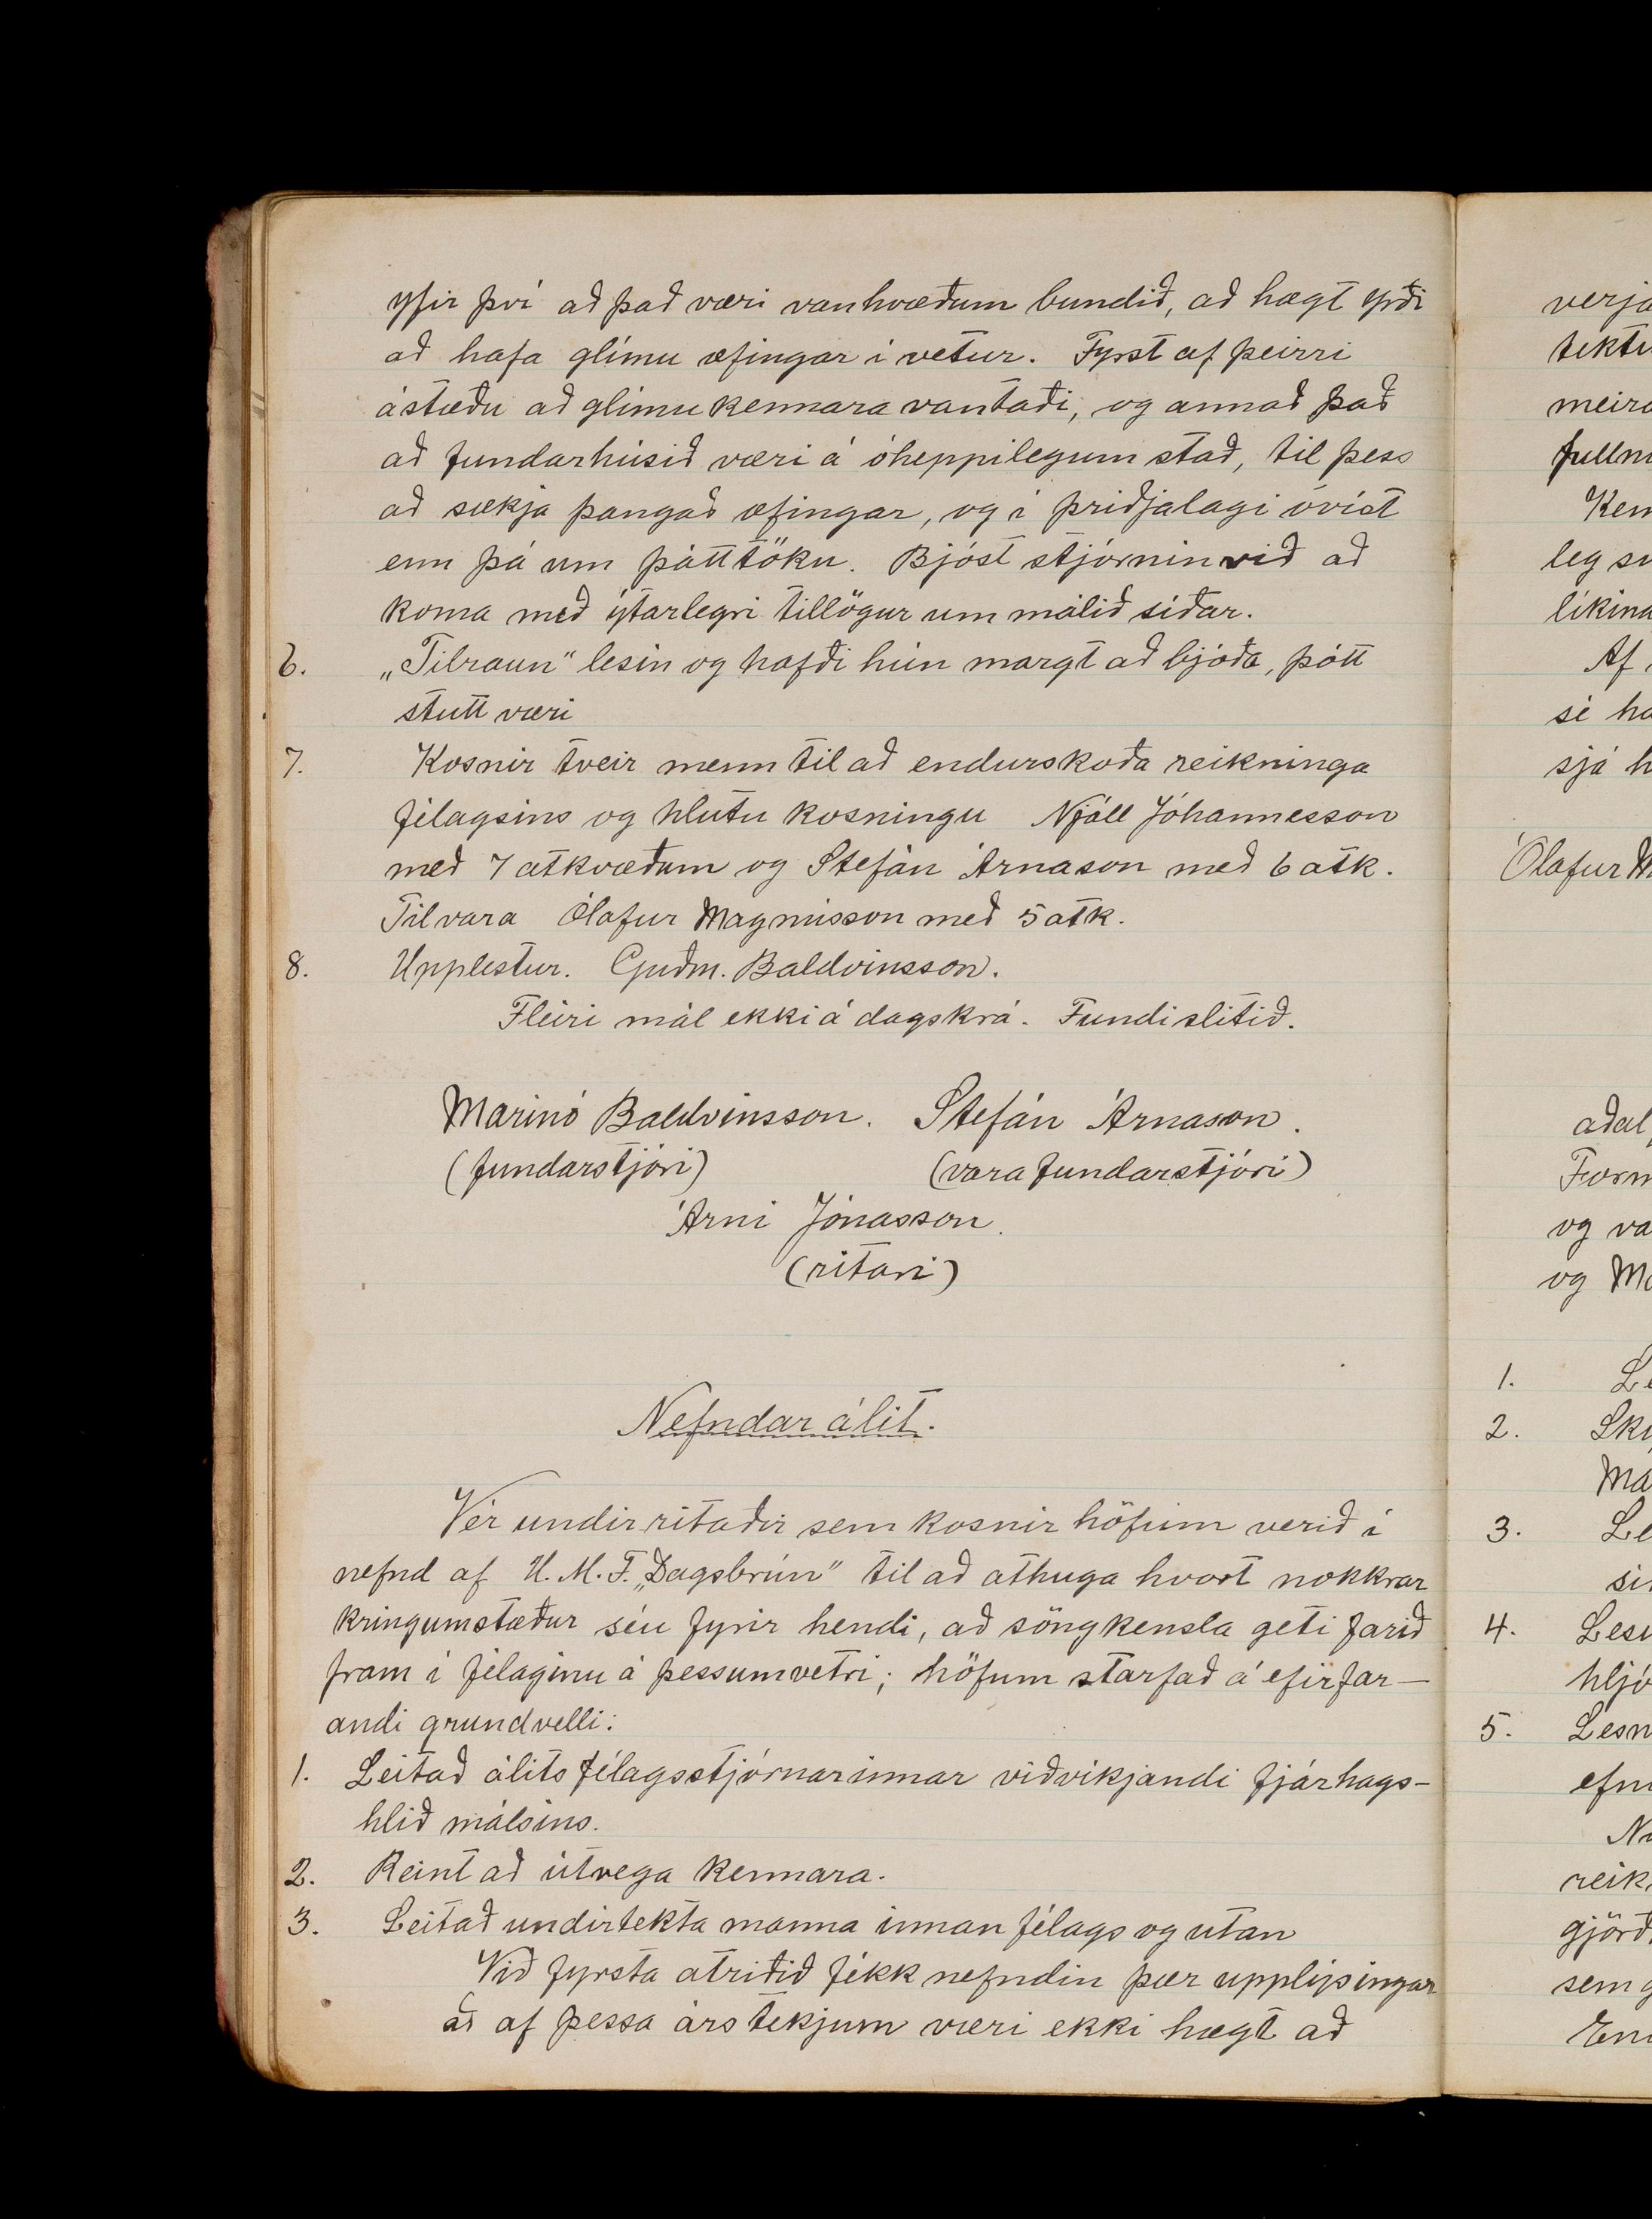 yfir því að það væri vanhvæðum bundið, að hægt yrði
að hafa glímu æfingar í vetur. Fyrst af þeirri
ástæðu að glímu kennara vantaði, og annað það
að fundarhúsið væri á óheppilegum stað, til þess
að sækja þangað æfingar, og í þriðjalagi óvíst
enn þá um þátttöku. Bjóst stjórnin við að
koma með ýtarlegri tillögur um málið síðar.
6. „Tilraun" lesin og hafði hún margt að bjóða, þótt
stutt væri
7. Kosnir tveir menn til að endurskoða reikninga
félagsins og hlutu kosningu Njáll Jóhannesson
með 7 atkvæðum og Stefán Árnason með 6 atk.
Til vara Ólafur Magnússon með 5 atk.
8. Upplestur. Guðm. Baldvinsson.
Fleiri mál ekki á dagskrá. Fundi slitið.
Marinó Baldvinsson. Stefán Árnason.
(fundarstjóri) (vara fundarstjóri)
Árni Jónasson.
(ritari)
Nefndar álit.
Vér undirritaðir sem kosnir höfum verið í
nefnd af U. M. F. „Dagsbrún" til að athuga hvort nokkrar
kringumstæður séu fyrir hendi, að söngkensla geti farið
fram í félaginu á þessum vetri; höfum starfað á efirfar-
andi grundvelli:
1. Leitað álits félagsstjórnarinnar viðvíkjandi fjárhags-
hlið málsins.
2. Reint að útvega kennara.
3. Leitað undirtekta manna innan félags og utan
Við fyrsta atriðið fékk nefndin þær upplýsingar
að af þessa árs tekjum væri ekki hægt að
verja
meira
leg
Af
sé
sjá
Ólafur
og
og
1.
2.
3.
4.
5.